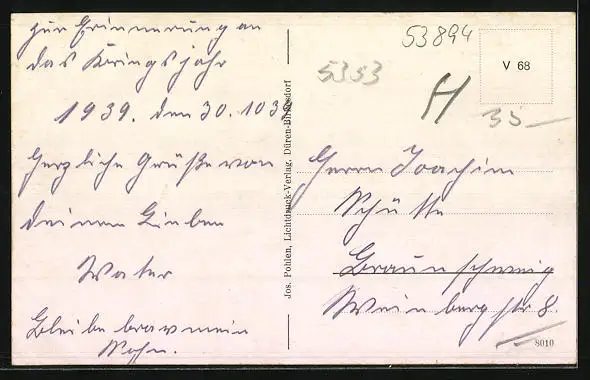 zur Erinnerung an
das Kriegsjahr
1939. den 30.1039
Herzliche Grüße von
deinem Lieben
Vater
Bleibe brav mein
Sohn.
Jos. Pohlen, Lichtdruck-Verlag, Düren-Birkesdorf
53894
5353
H
V 68
35
Herrn Joachim
Schütte
Braunschweig
Weinbergstr 8.
8010